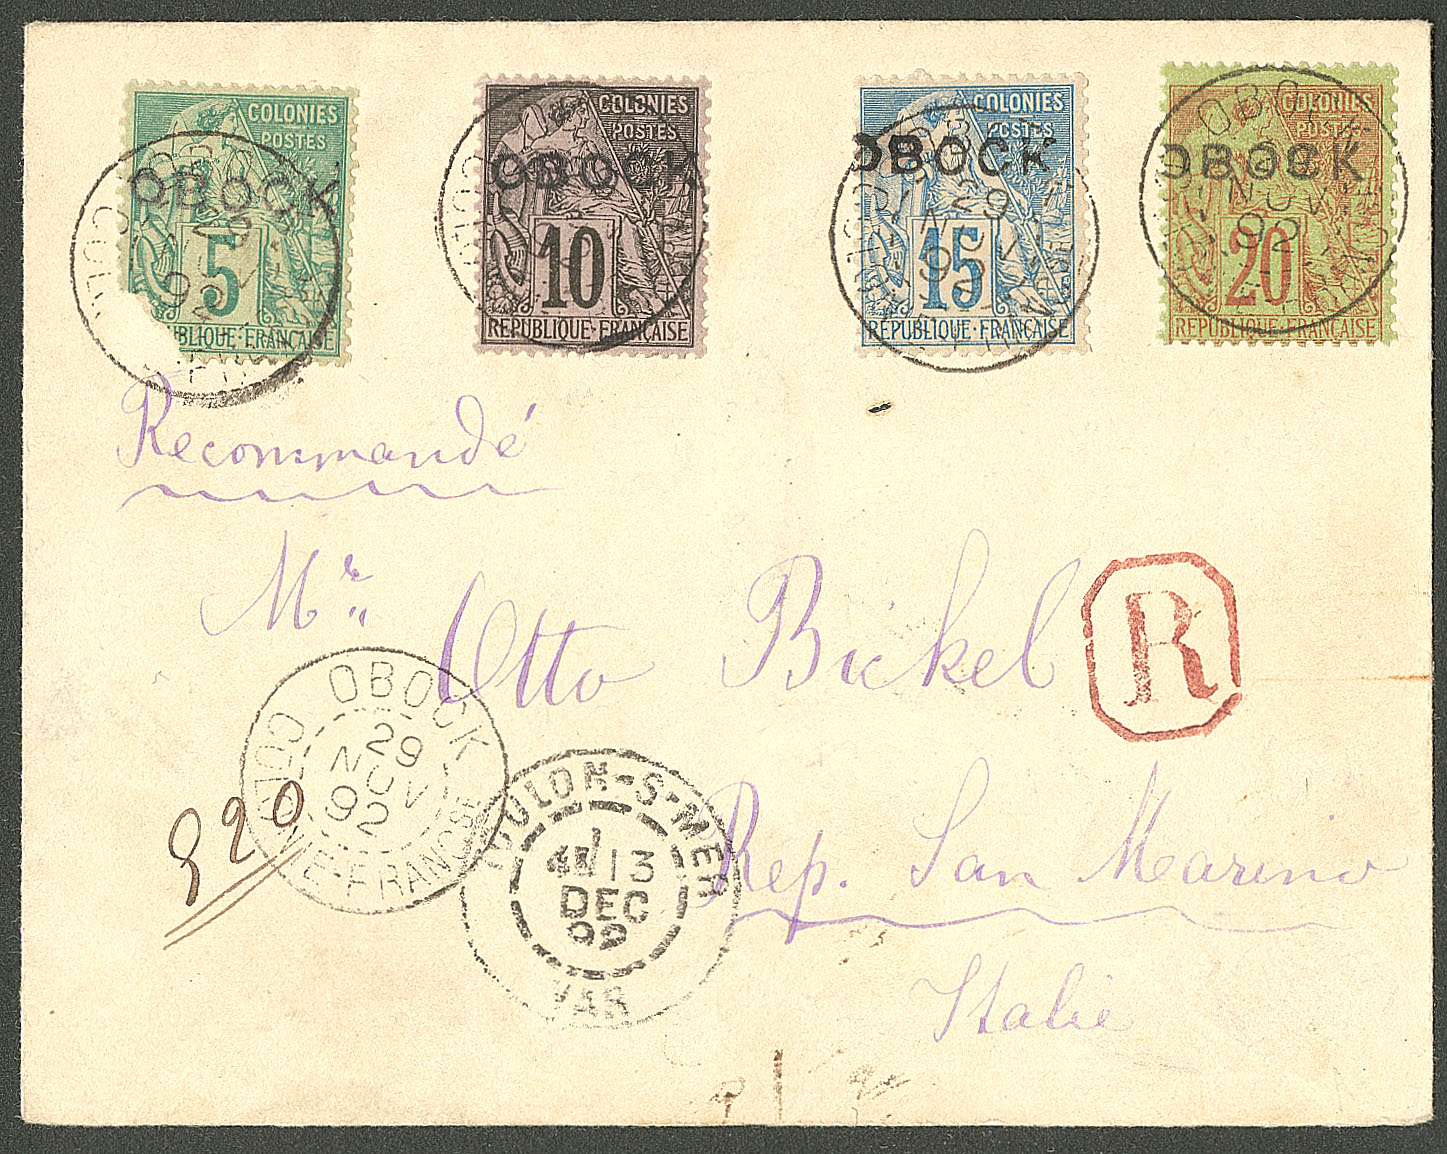 COLONIES
POSTES
OBOCK
5
RÉPUBLIQUE·FRANÇAISE
COLONIES
POSTES
OBOCK
10
RÉPUBLIQUE·FRANÇAISE
COLONIES
POSTES
OBOCK
29
NOV
92
15
RÉPUBLIQUE·FRANÇAISE
OBOCK
COLONIES
POSTES
OBOCK
NOV
92
20
RÉPUBLIQUE·FRANÇAISE
Recommandé
Mr. Otto Bickel
R
OBOCK
29
NOV
92
COLONIE-FRANCSE
TOULON-S-MER
13
DEC
92
VAR
Rep. San Marino
Italie